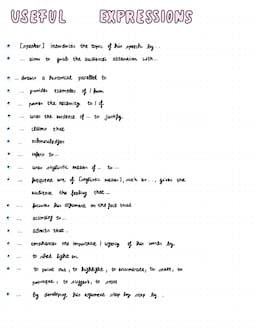 USEFUL EXPRESSIONS
• [speaker] introduces the topic of his speech by ..
• ... aims to grab the audience's attention with...
• ... draws a historical parallel to
• ... provides examples of / from
• ... proves the necessity to / of
• ... uses the evidence of ... to justify
• ... claims that
• ... acknowledges
• ... refers to ...
• ... uses stylistic means of ... to ...
• ... frequent use of [stylistic means], such as ..., gives the
audience the feeling that ...
• ... focuses his argument on the fact that
• ... according to ...
• ... admits that ..
• ... emphasises the importance / urgency of his words by..
• ... to shed light on
• ... to point out, to highlight, to enumerate, to state, to
persuade, to suggest, to
• ... by developing his argument step by step by ..